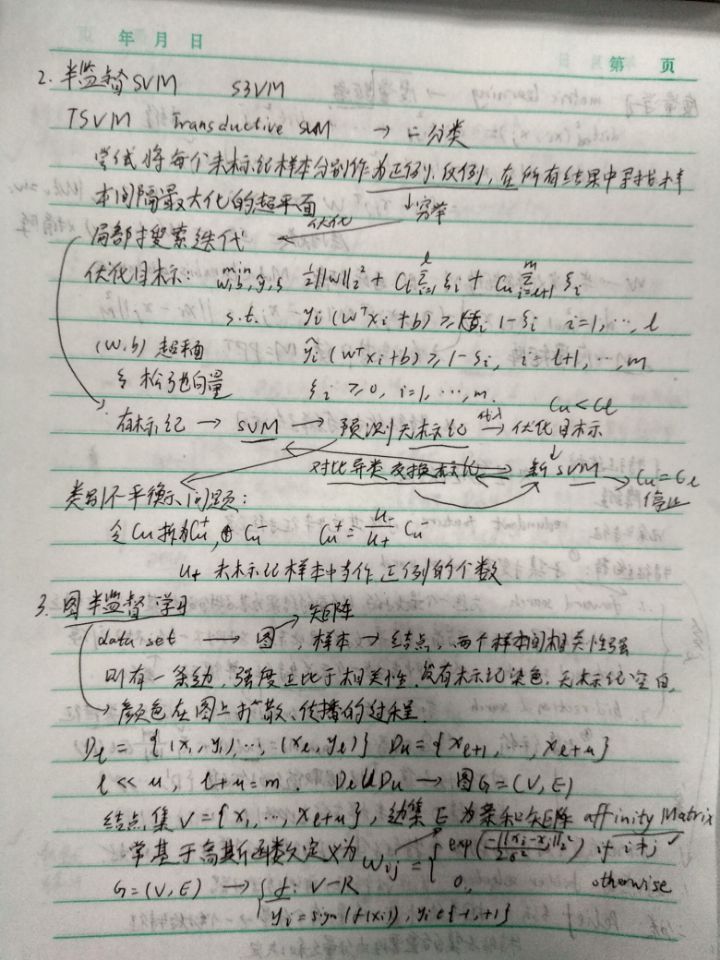 年 月 日
第 页
2. 半监督SVM S3VM
TSVM Transductive SVM → 二分类
尝试将每个未标记样本分别作为正例、反例, 在所有结果中寻找样
本间隔最大化的超平面 ↓穷举
局部搜索迭代 ← 优化
优化目标: min w,b,ŷ,ξ ½||w||₂² + Cl Σ_{i=1}^{l} ξi + Cu Σ_{i=l+1}^{m} ξi
s.t. yi (wᵀxi+b) ≥ 1-ξi i=1,…,l
(w,b) 超平面 ŷi (wᵀxi+b) ≥ 1-ξi, i=l+1,…,m
ξ 松弛向量 ξi ≥ 0, i=1,…,m.
Cu<Cl
有标记 → SVM → 预测无标记 代入→ 优化目标
对比异类 交换标记 新SVM → Cu=Cl
停止
类别不平衡问题:
令Cu拆为Cu⁺, Cu⁻ Cu⁺ = u₋/u₊ Cu⁻
u₊ 未标记样本中当作正例的个数
3. 图半监督学习 矩阵
data set → 图, 样本 → 结点, 两个样本间相关性强
则有一条边, 强度正比于相关性, 没有标记空白,
颜色在图上扩散、传播的过程.
Dl = {(x₁,y₁),…,(xl,yl)} Du = {xl+1, , xl+u}
l << u, l+u=m. Dl∪Du → 图G=(V,E)
结点集 V={x₁,…,xl+u}, 边集 E 为亲和矩阵 affinity Matrix
常基于高斯函数定义为 Wij = { exp(-||xi-xj||₂²/2σ²) if i≠j
0, otherwise
G=(V,E) → { f: V→R
yi=sign(f(xi)), yi∈{-1,+1}